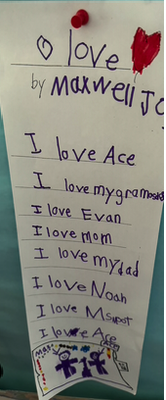 love
by Maxwell Jo
I love Ace
I love my gram
I love Evan
I love mom
I love my dad
I love Noah
I love M
I love Ace